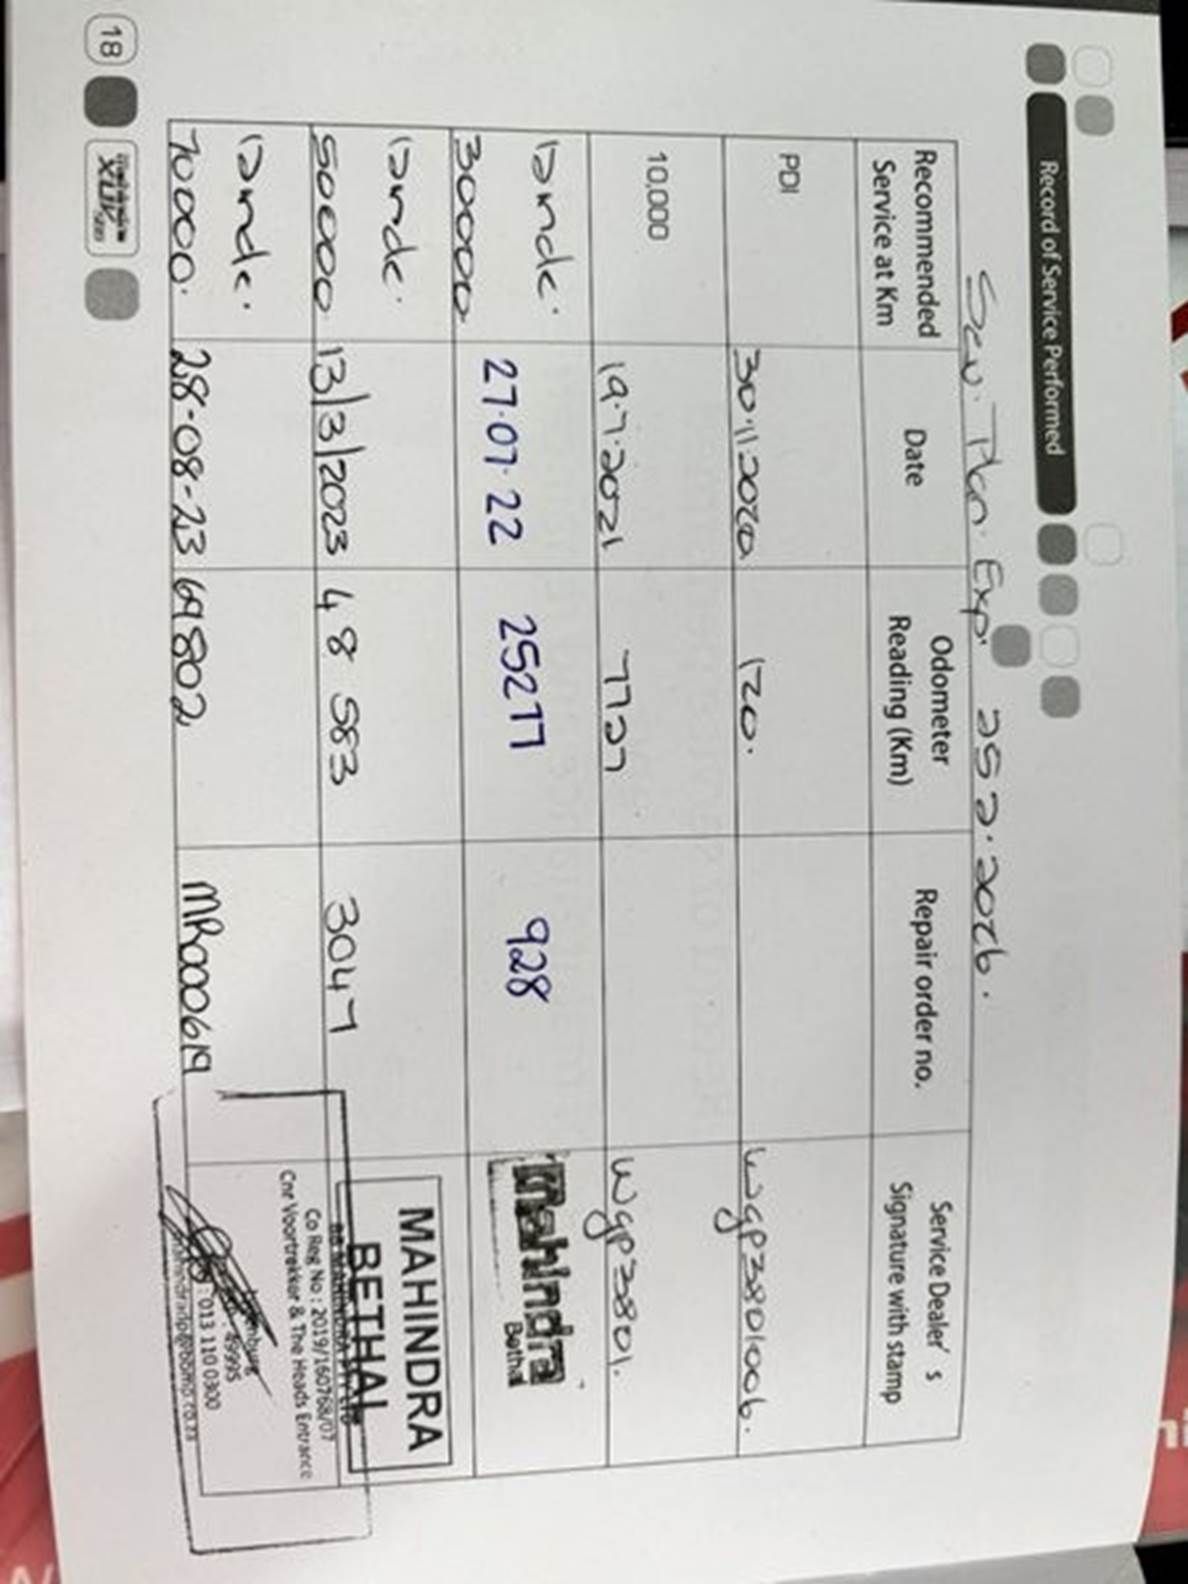 Record of Service Performed
Serv. Plan. Exp. 25 2. 2026.
Recommended Service at Km
Date
Odometer Reading (Km)
Repair order no.
Service Dealer's Signature with stamp
PDI
30.11 2020
120.
WGP3801006.
10,000
19.7.2021
7727
WGP3801.
30000
27.07.22
25277
928
mahindra
Bethal
50000
13/3/2023
48 583
3047
MAHINDRA
BETHAL
70000.
28-08-23
69802
MR000619
Co Reg No : 2019/160768/07
Cnr Voortrekker & The Heads Entrance
: 013 110 0300
18
mahindra
XUV